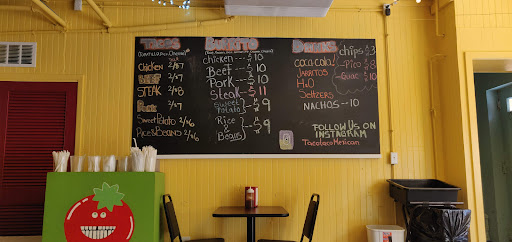 TACOS
Chicken 2/$7
BEEF 2/$7
STEAK 2/$8
Pork 2/$7
Sweet Potato 2/$6
Rice & BEANS 2/$6
BURRITO
chicken $10
Beef $10
Pork $10
Steak $11
sweet Potato $9
Rice & Beans $9
Drinks
Coca cola
JARRITOS
H2O
Seltzers
NACHOS--10
chips $3
-Pico $8
-Guac $10
FOLLOW US ON
INSTAGRAM
TacolocoMexican